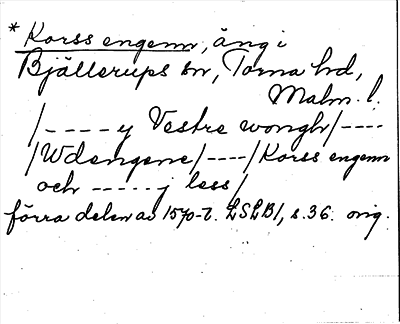 * Korss engenn, äng i
Bjällerups sn, Torna hd,
Malm. l.
/- - - - y Vestre wongh/- - - -
/Wdengene/- - - -/Korss engenn
och - - - - - j less/
förra delen av 1570-t. LSLB1, s. 36. orig.